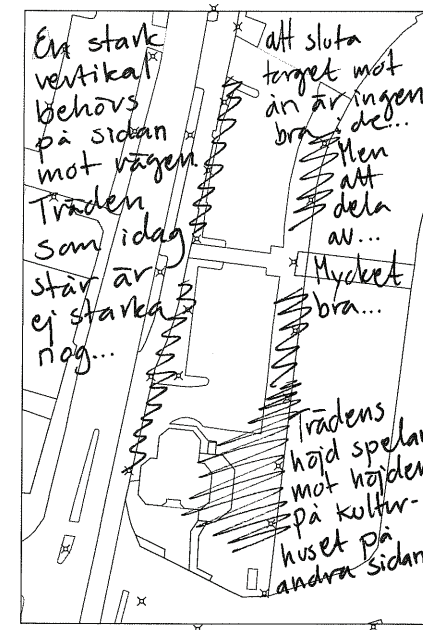 En stark
vertikal
behövs
på sidan
mot vägen
Träden
som idag
står är
ej starka
nog...
att sluta
torget mot
ån är ingen
bra ide...
Men
att
dela
av...
Mycket
bra...
Trädens
höjd spelar
mot höjden
på kultur-
huset på
andra sidan